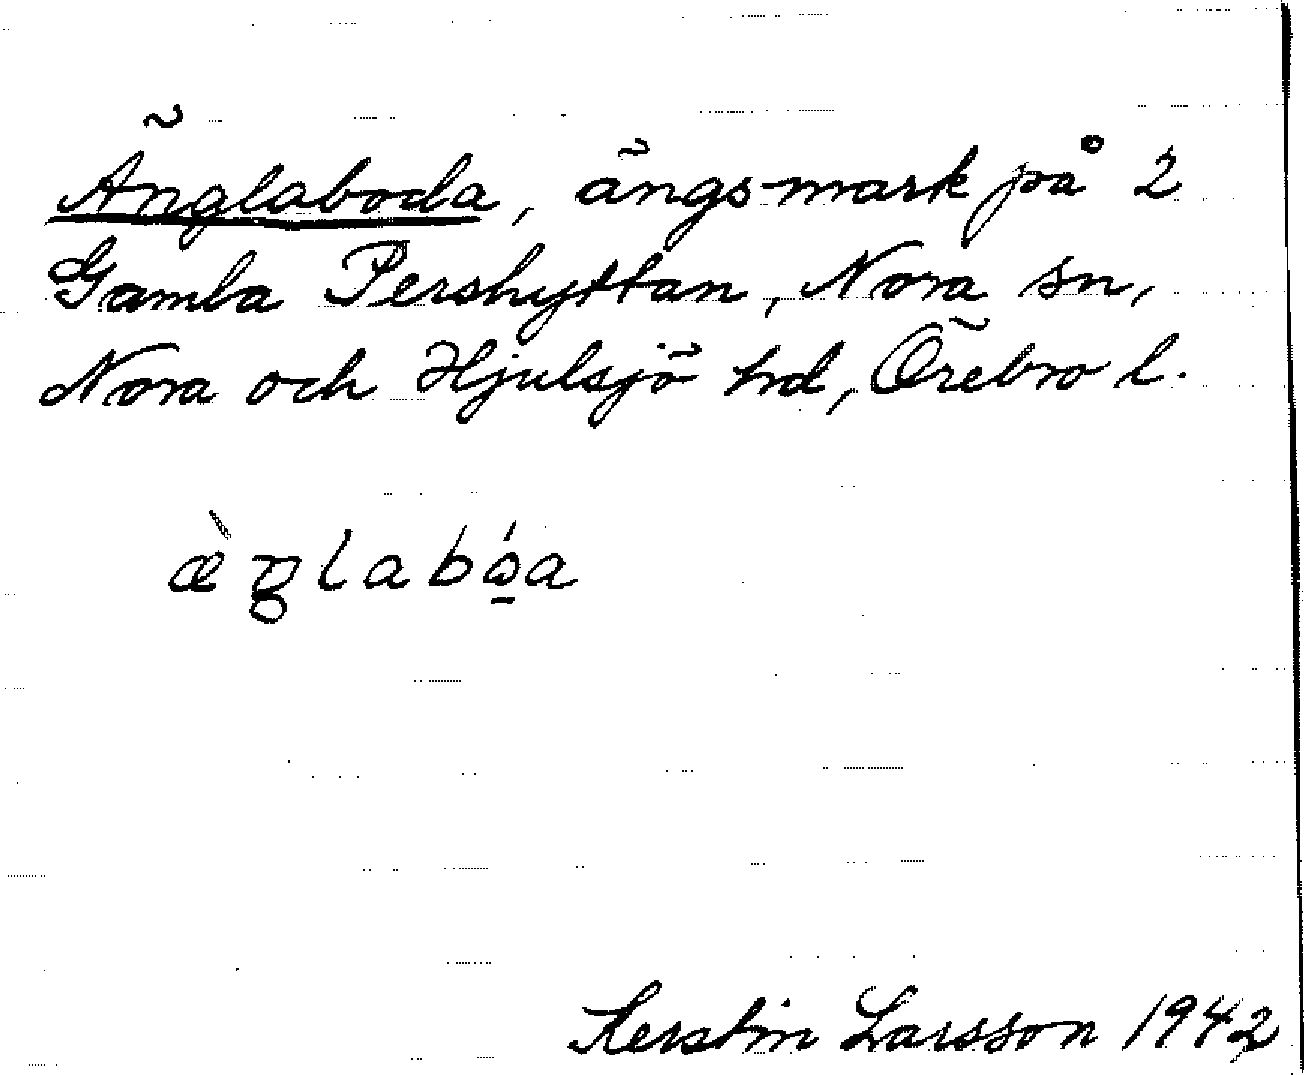 Änglaboda, ängsmark på 2
Gamla Pershyttan, Nora sn,
Nora och Hjulsjö hd, Örebro l.
Kerstin Larsson 1942